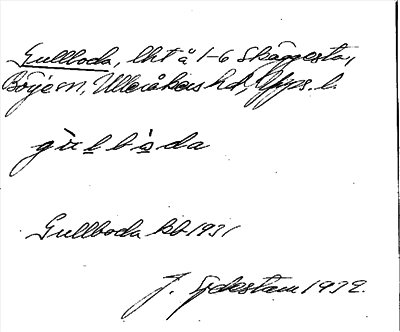 Gullboda, lht å 1-6 Skäggesta,
Börje sn, Ulleråkers hd, Upps. l.
gu̇llbo̊da
Gullboda kb 1931
J. Sjöstam 1932.